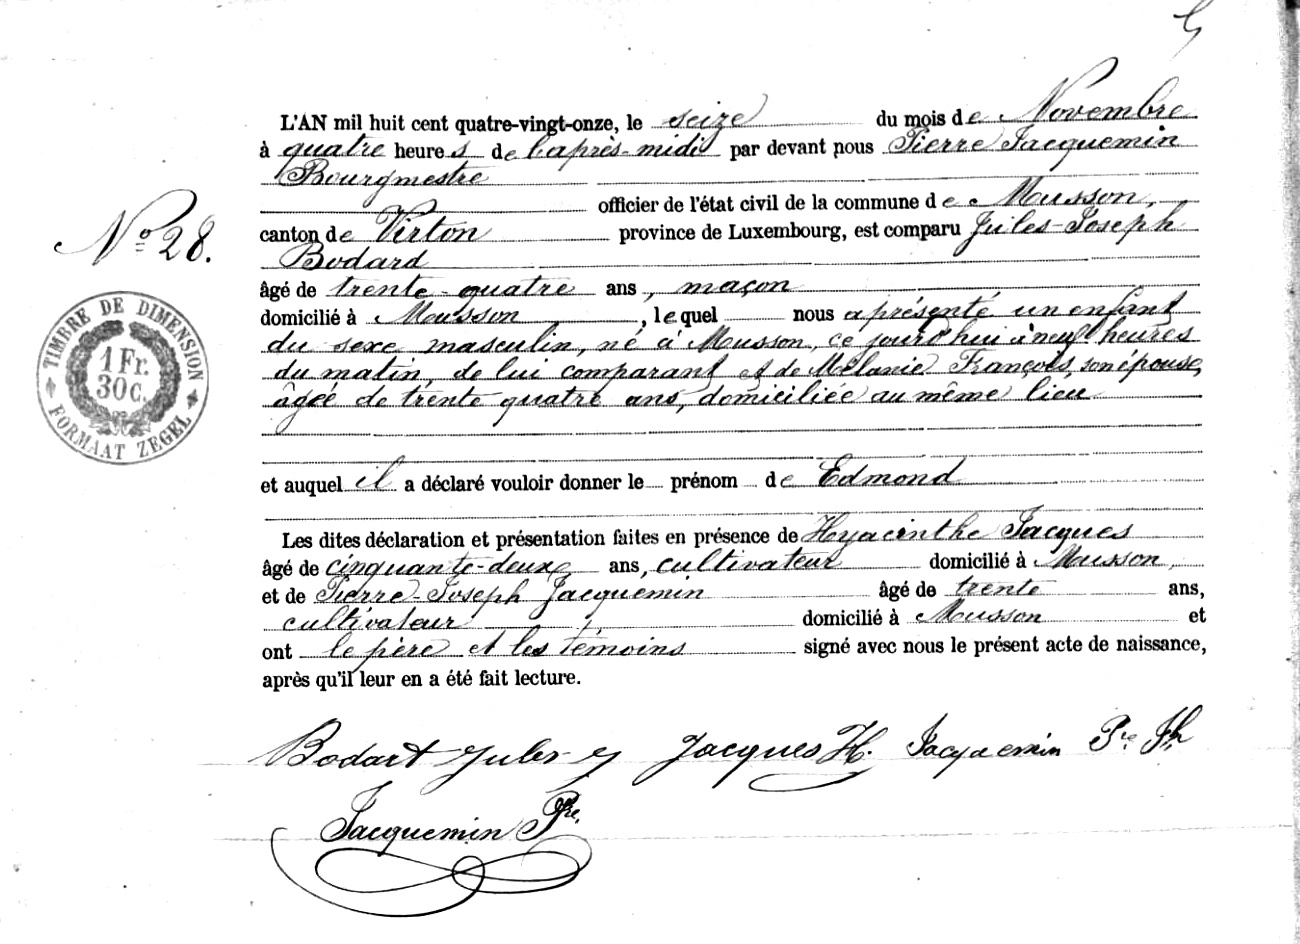 L'AN mil huit cent quatre-vingt-onze, le seize du mois de Novembre
à quatre heures de l'après-midi par devant nous Pierre Jacquemin
Bourgmestre
officier de l'état civil de la commune de Musson,
canton de Virton province de Luxembourg, est comparu Jules-Joseph
Bodard
âgé de trente-quatre ans, maçon
domicilié à Musson, lequel nous a présenté un enfant
du sexe masculin, né à Musson, ce jourd'hui à neuf heures
du matin, de lui comparant et de Mélanie François, son épouse,
âgée de trente quatre ans, domiciliée au même lieu
et auquel il a déclaré vouloir donner le prénom de Edmond
Les dites déclaration et présentation faites en présence de Hyacinthe Jacques
âgé de cinquante-deux ans, cultivateur domicilié à Musson,
et de Pierre-Joseph Jacquemin âgé de trente ans,
cultivateur, domicilié à Musson et
ont le père et les témoins signé avec nous le présent acte de naissance,
après qu'il leur en a été fait lecture.
No 28.
TIMBRE DE DIMENSION
1 Fr.
30 c.
FORMAAT ZEGEL
Bodart Jules Jacques H. Jacquemin Pre Jh
Jacquemin Pre.